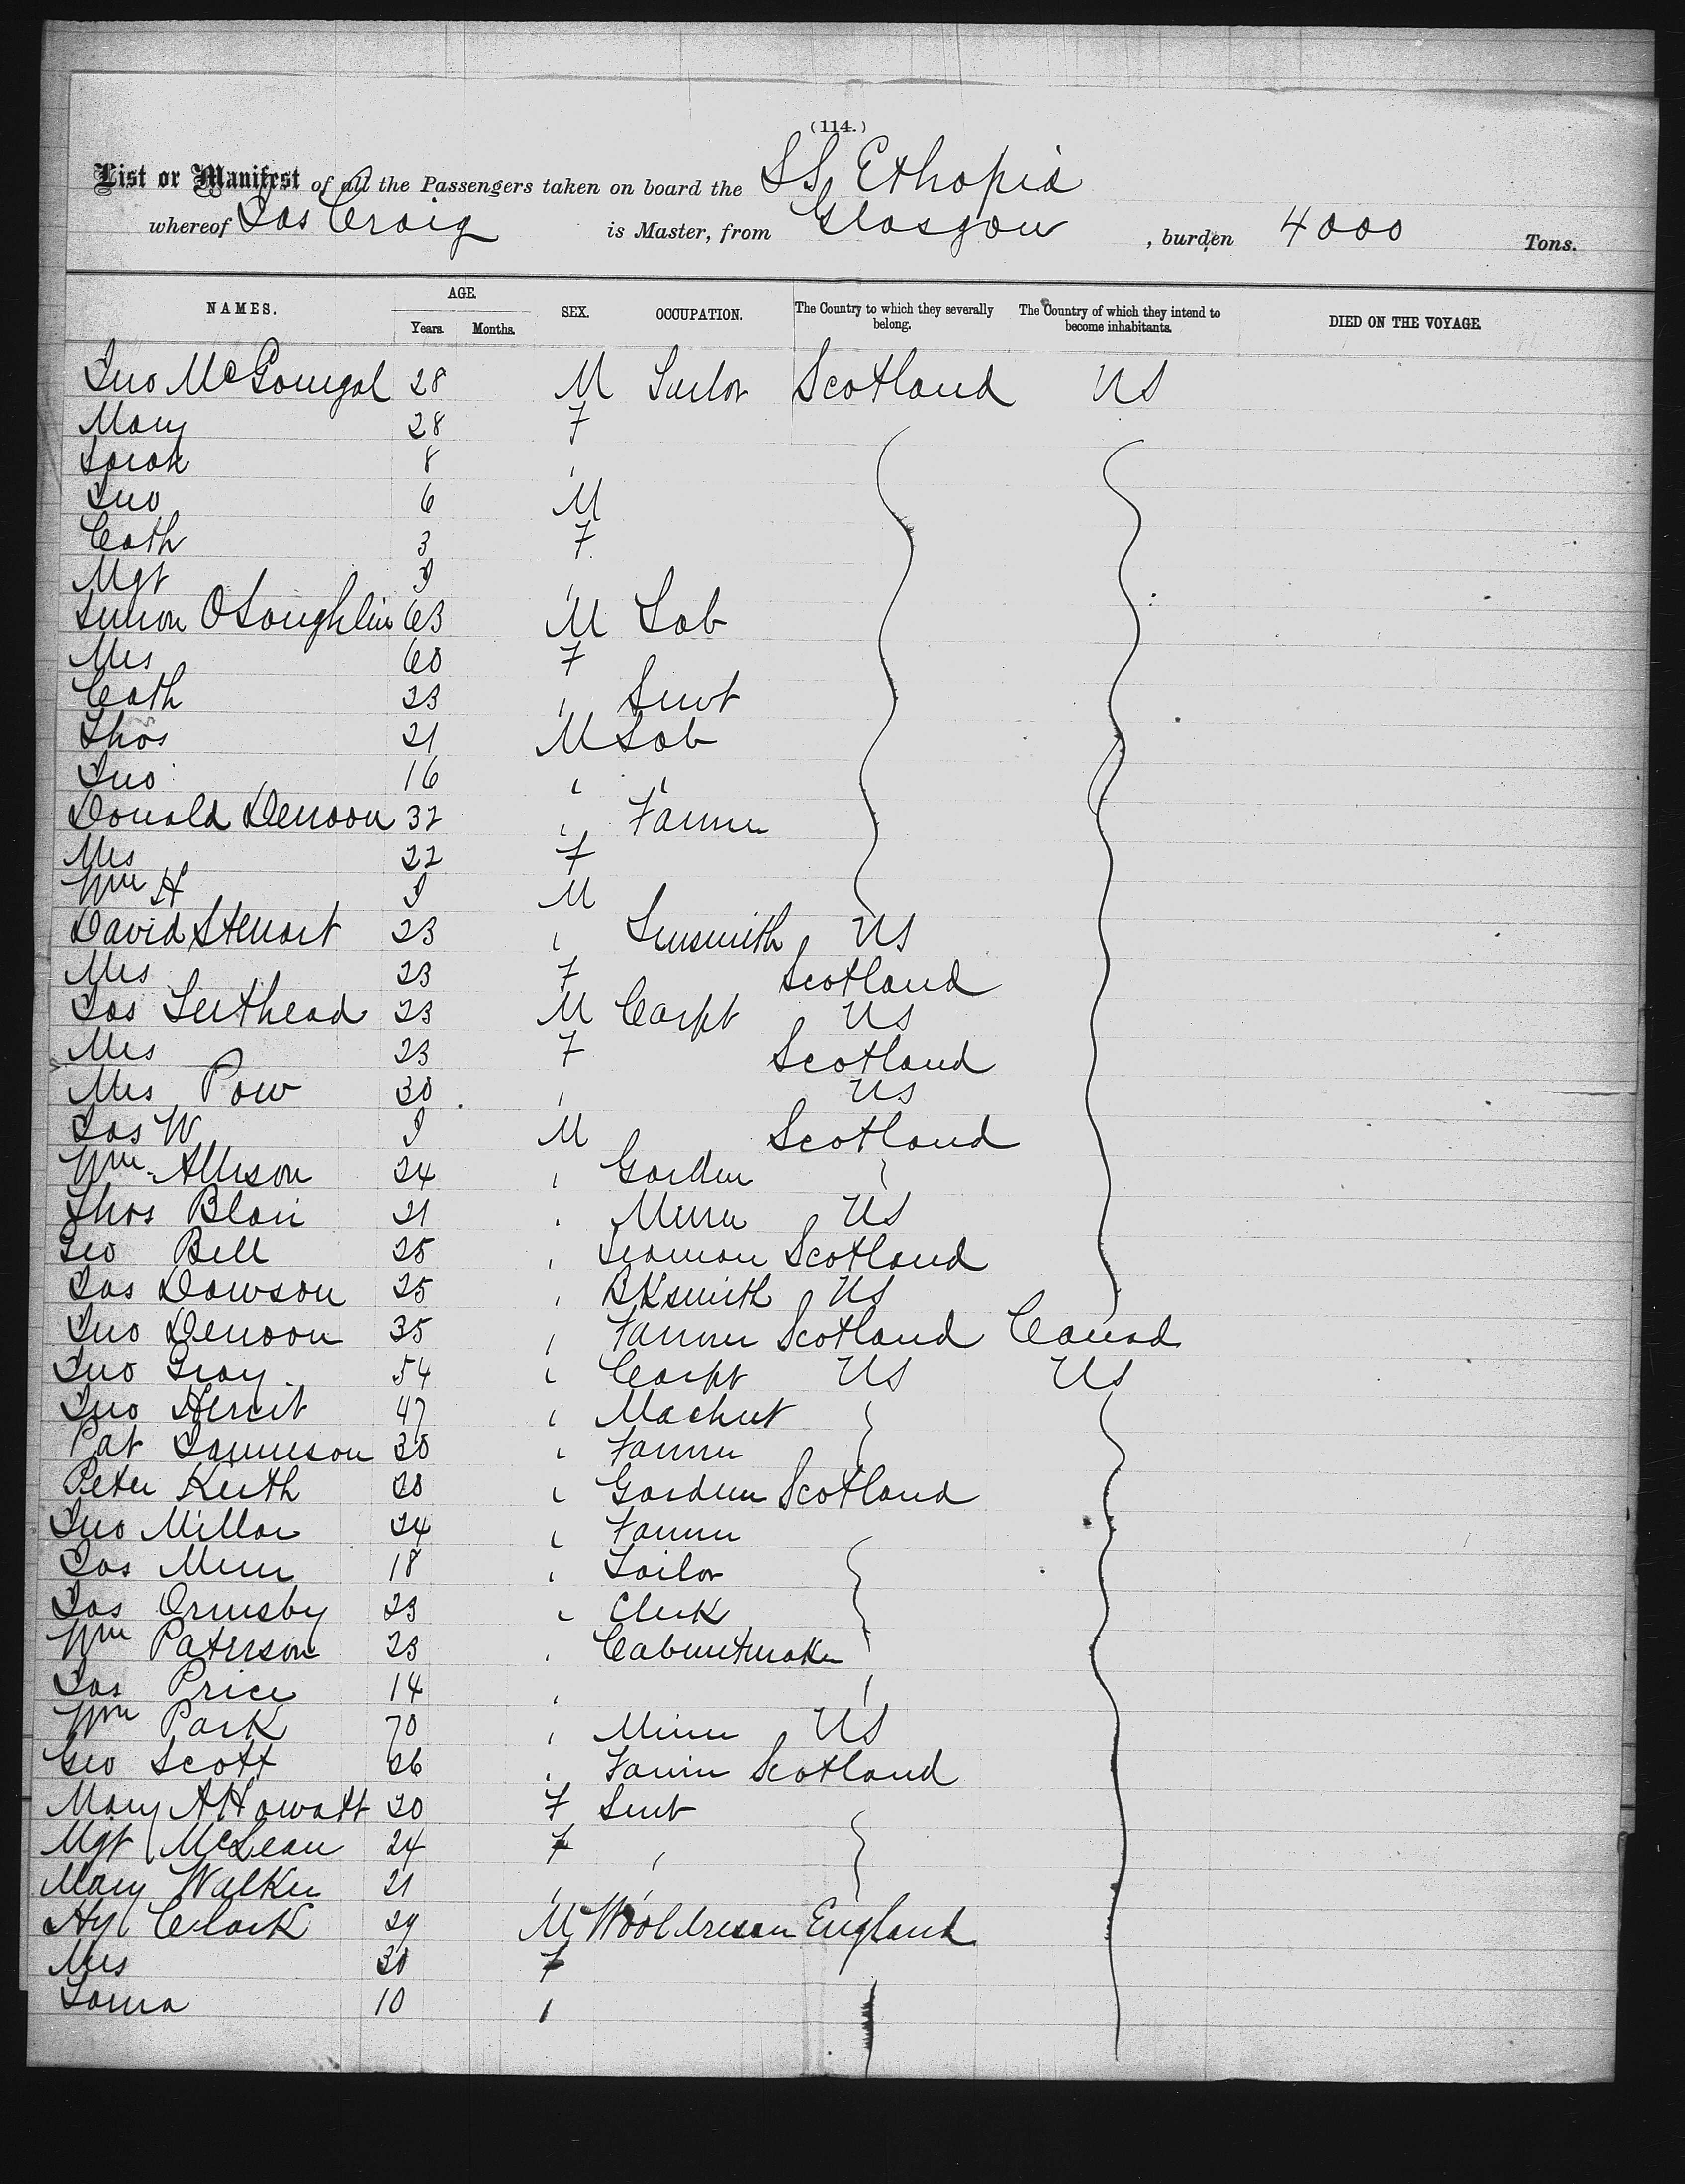 (114.)
List or Manifest of all the Passengers taken on board the SS Ethopia
whereof Jas Craig is Master, from Glasgow , burden 4000 Tons.
NAMES. AGE. SEX. OCCUPATION. The Country to which they severally belong. The Country of which they intend to become inhabitants. DIED ON THE VOYAGE.
Years. Months.
Jno McGonigal 28 M Scotland US
Mary 28 F
Sarah 8 "
Jno 6 M
Cath 3 F
Mgt "
Simon OLoughlin 63 M Lab
Mrs 60 F
Cath 23 " Servt
Thos 21 M Lab
Jno 16 " "
Donald Denoon 32 " Farmer
Mrs 22 F
Wm H M
David Stewart 23 " Tinsmith US
Mrs 23 F Scotland
Jas Leithead 23 M Carpt US
Mrs 23 F Scotland
Mrs Pow 30 " US
Jas W M Scotland
Wm Allison 24 " Garden "
Thos Blair 21 " Miner US
Geo Bell 25 " Seaman Scotland
Jas Dawson 25 " BKsmith US
Jno Denoon 35 " Farmer Scotland Canad
Jno Gray 54 " Carpt US US
Jno 47 " Machnt
Pat Jamieson 30 " Farmer
Peter Keith 20 " Gardner Scotland
Jno Millar 24 " Farmer
Jas 18 " Tailor
Jas Ormsby 23 " Clerk
Wm Paterson 23 " Cabinetmaker
Jas Price 14 " "
Wm Park 70 " Miner US
Geo Scott 26 " Farmer Scotland
Mary A Howatt 20 F Servt
Mgt McLean 24 F "
Mary Walker 21 " "
Hy Clark 29 M England
Mrs 30 F
Laura 10 "